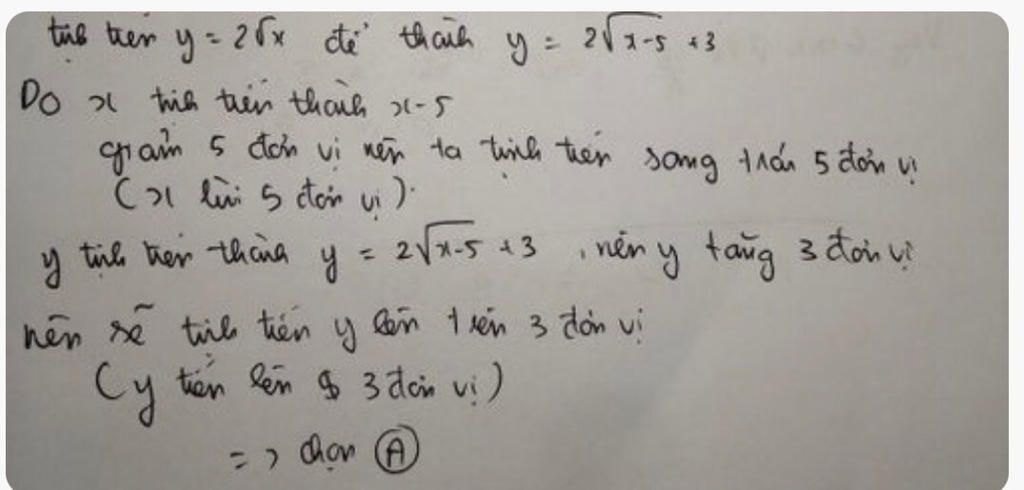 tịnh tiến y = 2√x để thành y = 2√x-5 +3
Do x tịnh tiến thành x-5
giảm 5 đơn vị nên ta tịnh tiến sang trái 5 đơn vị
(x lùi 5 đơn vị)
y tịnh tiến thành y = 2√x-5 +3 , nên y tăng 3 đơn vị
nên sẽ tịnh tiến y lên trên 3 đơn vị
(y tiến lên 3 đơn vị)
=> chọn Ⓐ